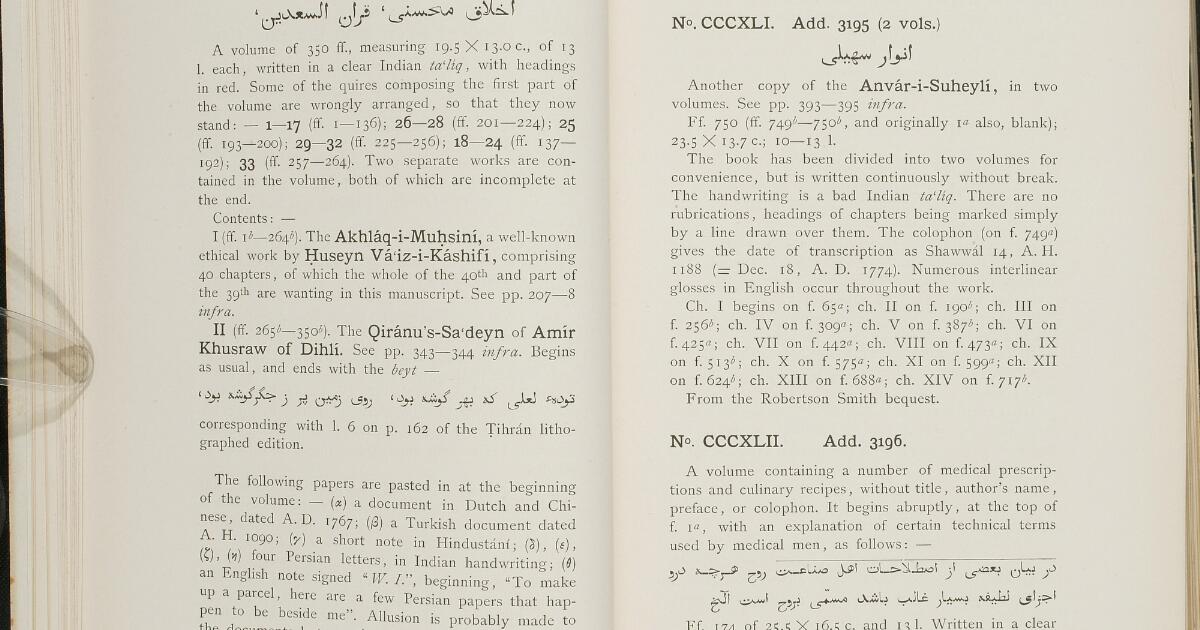 اخلاق محسنی، قران السعدین،
A volume of 350 ff., measuring 19.5 × 13.0 c., of 13
l. each, written in a clear Indian ta‘líq, with headings
in red. Some of the quires composing the first part of
the volume are wrongly arranged, so that they now
stand: — 1—17 (ff. 1—136); 26—28 (ff. 201—224); 25
(ff. 193—200); 29—32 (ff. 225—256); 18—24 (ff. 137—
192); 33 (ff. 257—264). Two separate works are con-
tained in the volume, both of which are incomplete at
the end.
Contents: —
I (ff. 1ᵇ—264ᵇ). The Akhláq-i-Muḥsiní, a well-known
ethical work by Ḥuseyn Vá‘iz-i-Káshifí, comprising
40 chapters, of which the whole of the 40th and part of
the 39th are wanting in this manuscript. See pp. 207—8
infra.
II (ff. 265ᵇ—350ᵇ). The Qiránu's-Sa‘deyn of Amír
Khusraw of Dihlí. See pp. 343—344 infra. Begins
as usual, and ends with the beyt —
تودهٔ لعلی که بهر گوشه بود، روی زمین پر ز جگرگوشه بود،
corresponding with l. 6 on p. 162 of the Ṭihrán litho-
graphed edition.
The following papers are pasted in at the beginning
of the volume: — (α) a document in Dutch and Chi-
nese, dated A. D. 1767; (β) a Turkish document dated
A. H. 1090; (γ) a short note in Hindustání; (δ), (ε),
(ζ), (η) four Persian letters, in Indian handwriting; (θ)
an English note signed “W. I.”, beginning, “To make
up a parcel, here are a few Persian papers that hap-
pen to be beside me”. Allusion is probably made to
No. CCCXLI. Add. 3195 (2 vols.)
انوار سهیلی
Another copy of the Anvár-i-Suheylí, in two
volumes. See pp. 393—395 infra.
Ff. 750 (ff. 749ᵇ—750ᵇ, and originally 1ᵃ also, blank);
23.5 × 13.7 c.; 10—13 l.
The book has been divided into two volumes for
convenience, but is written continuously without break.
The handwriting is a bad Indian ta‘líq. There are no
rubrications, headings of chapters being marked simply
by a line drawn over them. The colophon (on f. 749ᵃ)
gives the date of transcription as Shawwál 14, A. H.
1188 (= Dec. 18, A. D. 1774). Numerous interlinear
glosses in English occur throughout the work.
Ch. I begins on f. 65ᵃ; ch. II on f. 190ᵇ; ch. III on
f. 256ᵇ; ch. IV on f. 309ᵃ; ch. V on f. 387ᵇ; ch. VI on
f. 425ᵃ; ch. VII on f. 442ᵃ; ch. VIII on f. 473ᵃ; ch. IX
on f. 513ᵇ; ch. X on f. 575ᵃ; ch. XI on f. 599ᵃ; ch. XII
on f. 624ᵇ; ch. XIII on f. 688ᵃ; ch. XIV on f. 717ᵇ.
From the Robertson Smith bequest.
No. CCCXLII. Add. 3196.
A volume containing a number of medical prescrip-
tions and culinary recipes, without title, author's name,
preface, or colophon. It begins abruptly, at the top of
f. 1ᵃ, with an explanation of certain technical terms
used by medical men, as follows: —
در بیان بعضی از اصطلاحات اهل صناعت روح هرچه درو
اجزای لطیفه بسیار غالب باشد مسمّی بروح است آلخ
Ff. 174 of 25.5 × 16.5 c. and 13 l. Written in a clear